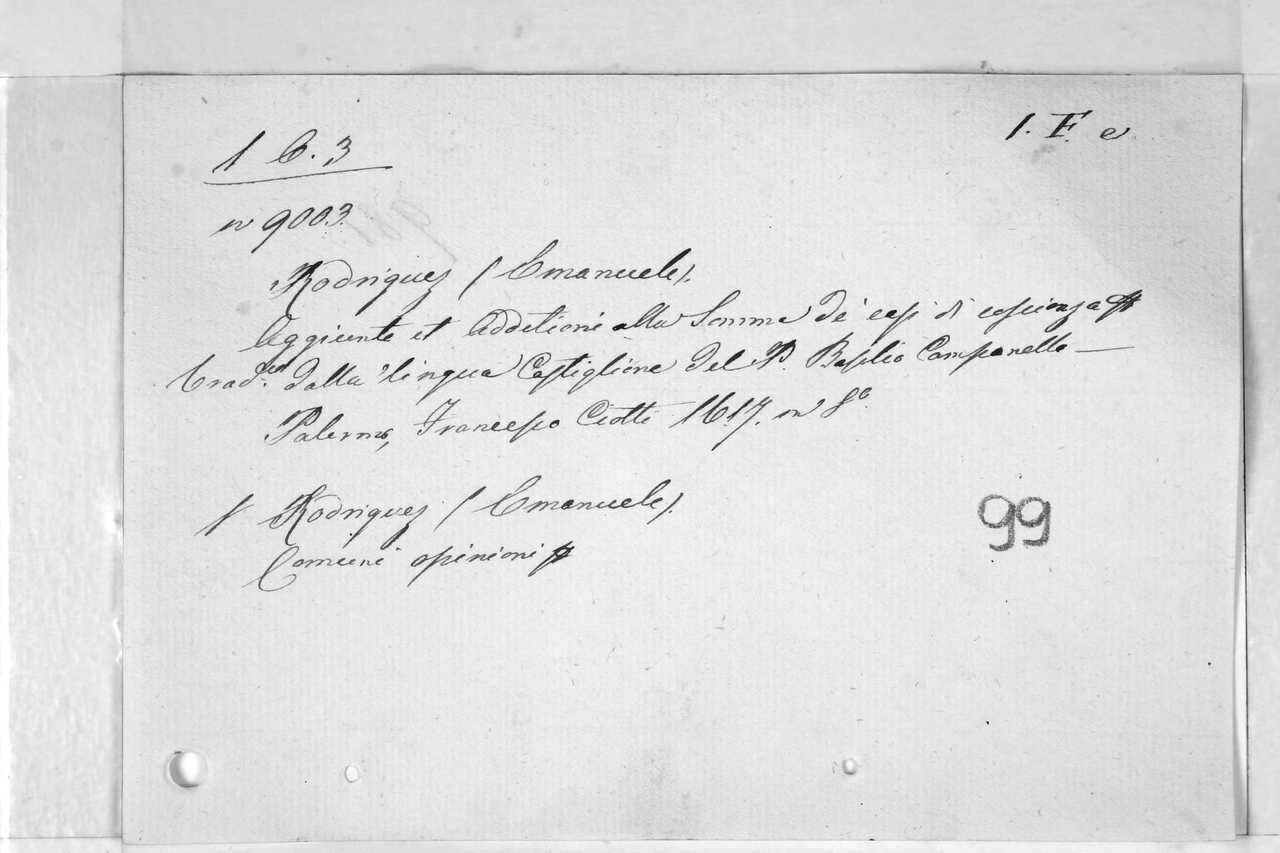 1 C. 3
1. F. e
n 9003.
Rodriguez (Emanuele).
Aggiunte et Additioni alla Somma de' casi di coscienza
Trad. dalla lingua Castigliana del P. Basilio Campanella —
Palermo, Francesco Ciotti 1617. in 8º
1 Rodriguez (Emanuele).
Comuni opinioni
99